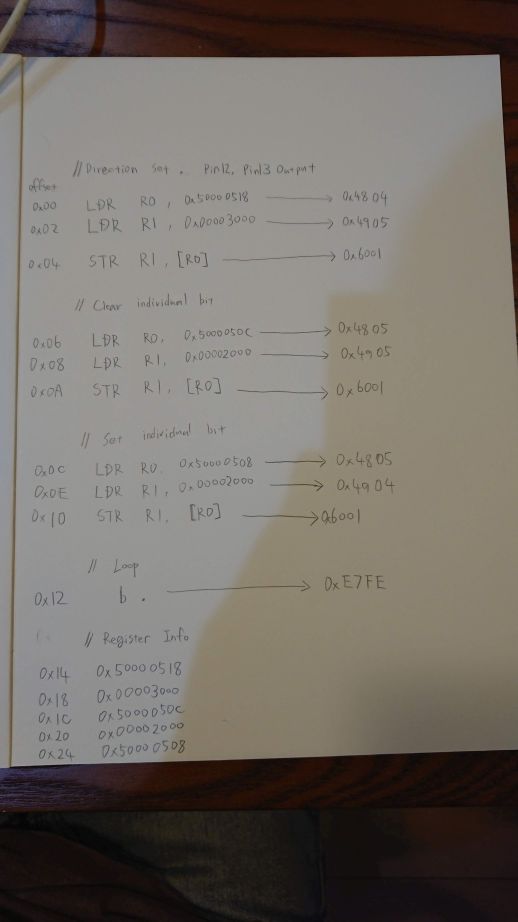 // Direction Set . Pin12, Pin13 Output
offset
0x00 LDR R0 , 0x50000518 → 0x4804
0x02 LDR R1 , 0x00003000 → 0x4905
0x04 STR R1 , [R0] → 0x6001
// Clear individual bit
0x06 LDR R0, 0x5000050C → 0x4805
0x08 LDR R1, 0x00002000 → 0x4905
0x0A STR R1, [R0] → 0x6001
// Set individual bit
0x0C LDR R0, 0x50000508 → 0x4805
0x0E LDR R1, 0x00002000 → 0x4904
0x10 STR R1, [R0] → 0x6001
// Loop
0x12 b . → 0xE7FE
// Register Info
0x14 0x50000518
0x18 0x00003000
0x1C 0x5000050C
0x20 0x00002000
0x24 0x50000508